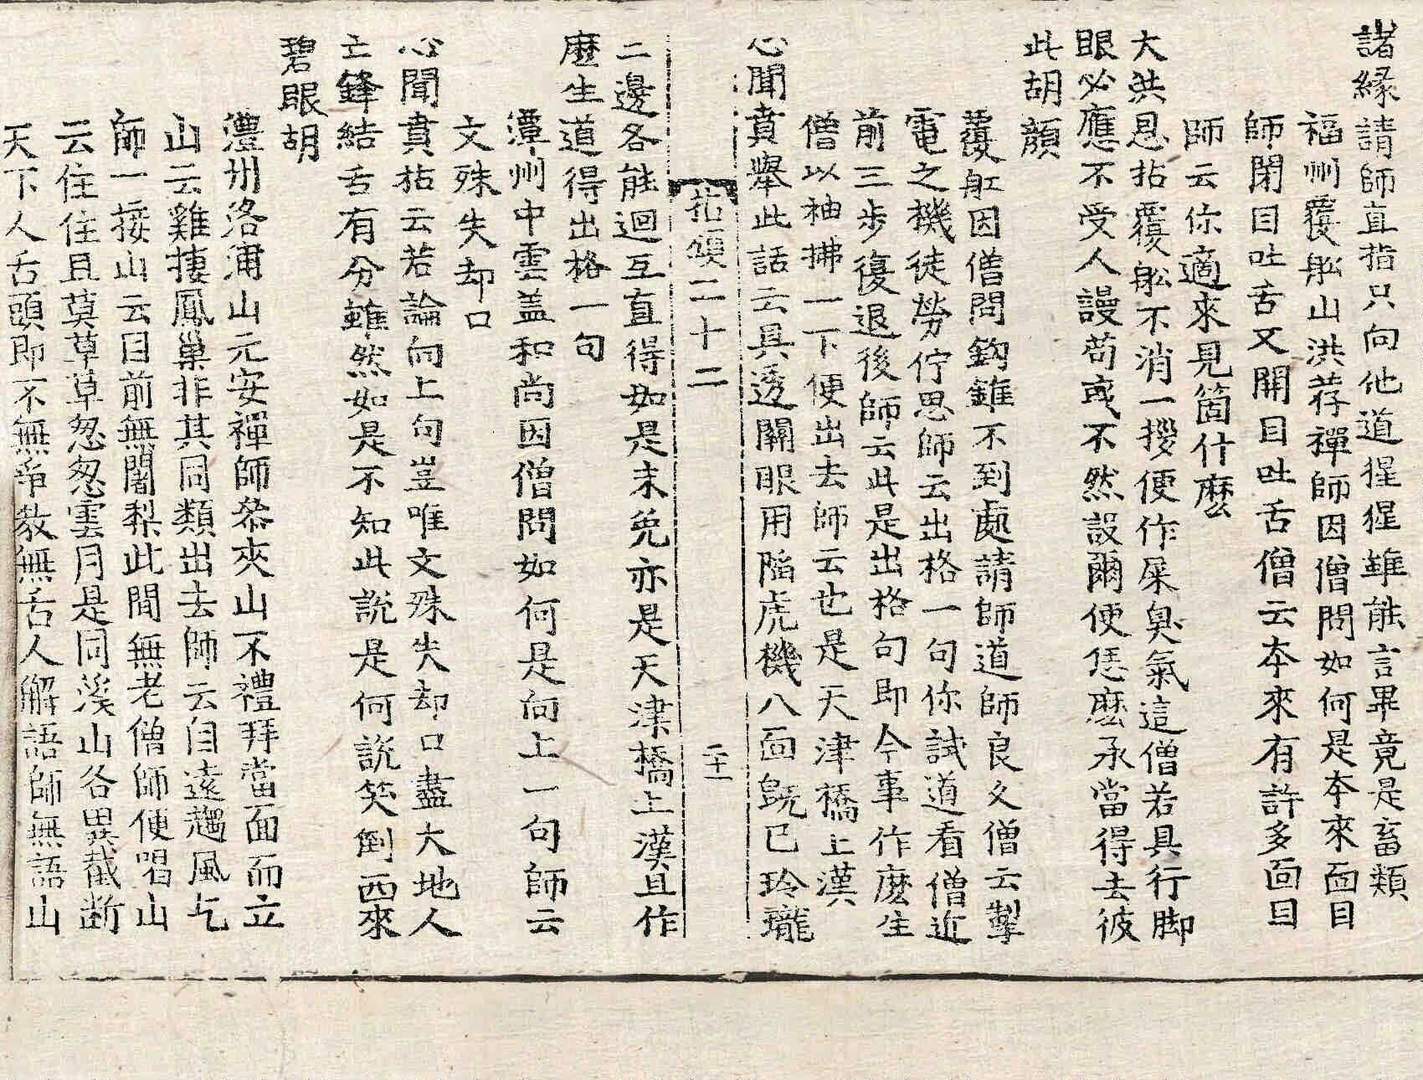 諸緣請師直指只向他道猩猩雖能言畢竟是畜類
福州覆舩山洪荐禪師因僧問如何是本來面目
師閉目吐舌又開目吐舌僧云本來有許多面目
師云你適來見箇什麽
大洪恩拈覆舩不消一拶便作屎臭氣這僧若具行脚
眼必應不受人謾苟或不然設爾便恁麽承當得去彼
此胡顏
覆舡因僧問鈎錐不到處請師道師良久僧云掣
電之機徒勞佇思師云出格一句你試道看僧近
前三步復退後師云此是出格句即今事作麽生
僧以袖拂一下便出去師云也是天津橋上漢
心聞賁舉此話云具透關眼用陷虎機八面旣已玲瓏
拈頌二十二
二十一
二邊各能迴互直得如是未免亦是天津橋上漢且作
麽生道得出格一句
潭州中雲盖和尚因僧問如何是向上一句師云
文殊失却口
心聞賁拈云若論向上句豈唯文殊失却口盡大地人
亡鋒結舌有分雖然如是不知此說是何說笑倒西來
碧眼胡
澧州洛浦山元安禪師叅夾山不禮拜當面而立
山云雞捿鳳巢非其同類出去師云自遠趨風乞
師一接山云目前無闍梨此間無老僧師便喝山
云住住且莫草草怱怱雲月是同溪山各異截斷
天下人舌頭即不無爭教無舌人解語師無語山